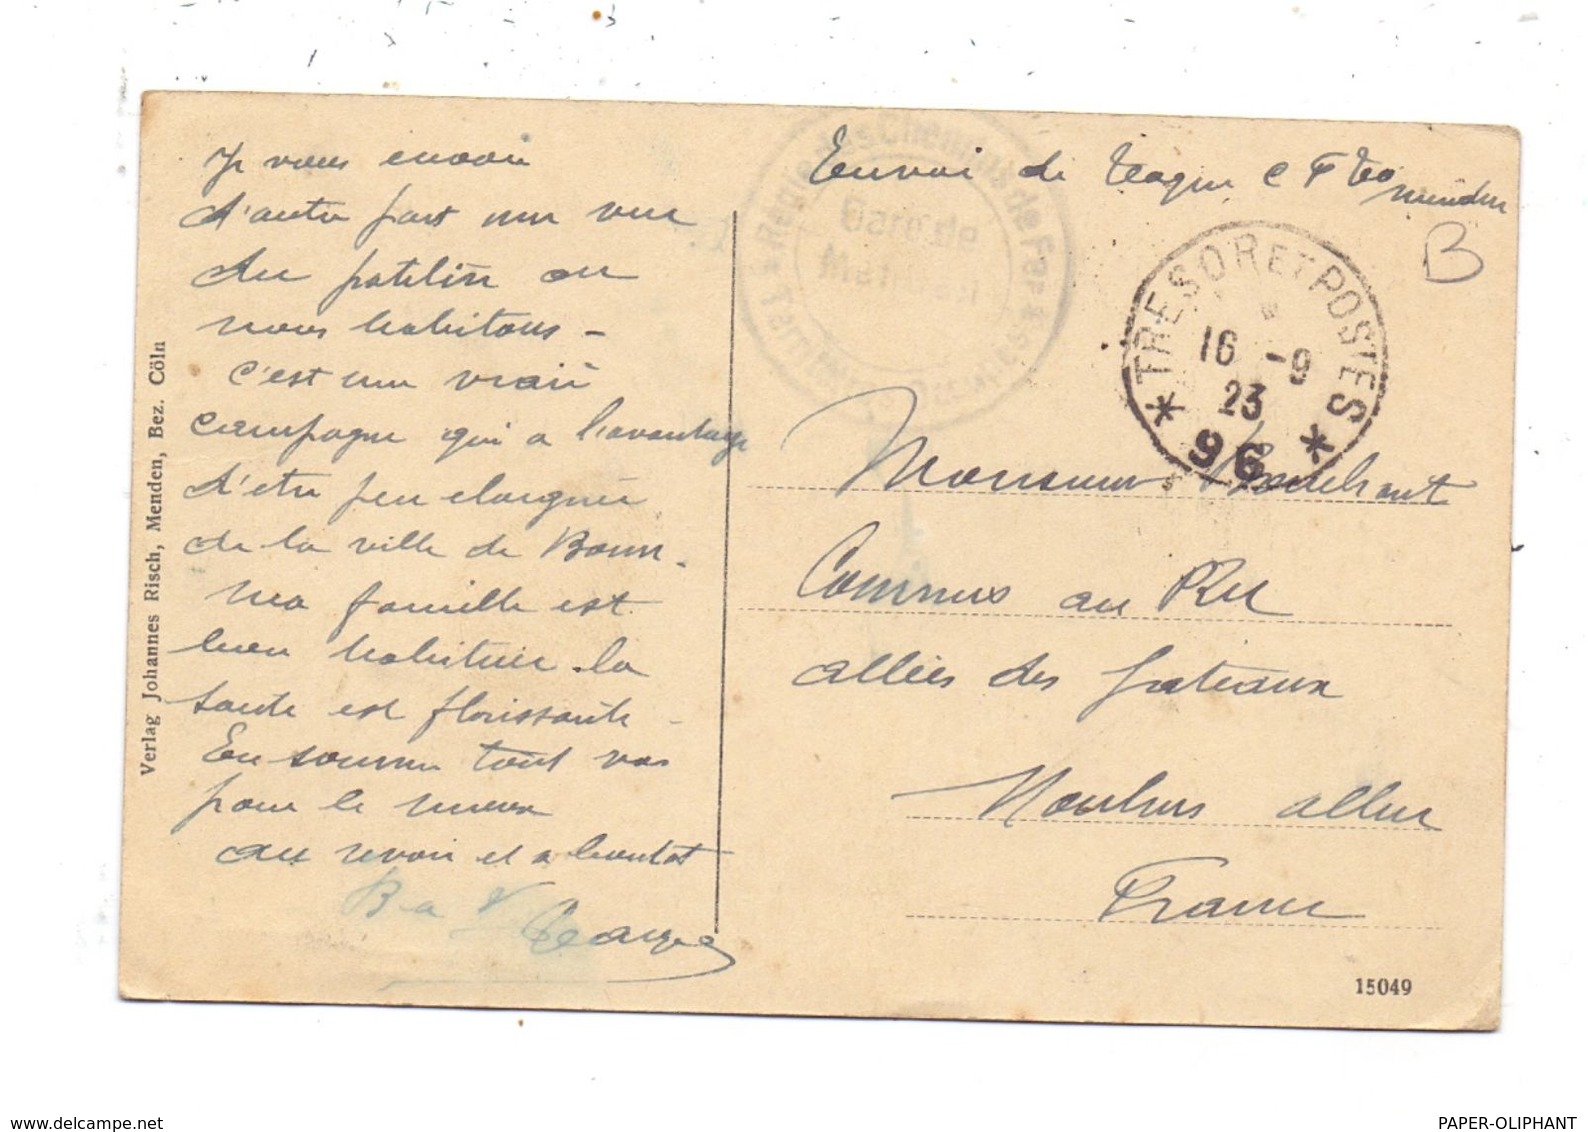 Je vous envoie
d'autre part une vue
du patelin ou
nous habitons -
c'est une vraie
campagne qui a l'avantage
d'etre peu eloignée
de la ville de Bonn -
Ma famille est
bien habituée . la
sante est florissante -
En somme tout va
pour le mieux
au revoir et a bientot
B a V
George
Verlag Johannes Risch, Menden, Bez. Cöln
Envoi de
menden
B
Régie des Chemins de Fer
TRESOR ET POSTES
16 -9
23
* 96 *
Monsieur
Commis au PLM
allées des gateaux
Moulins allier
France
15049
www.delcampe.net
PAPER-OLIPHANT